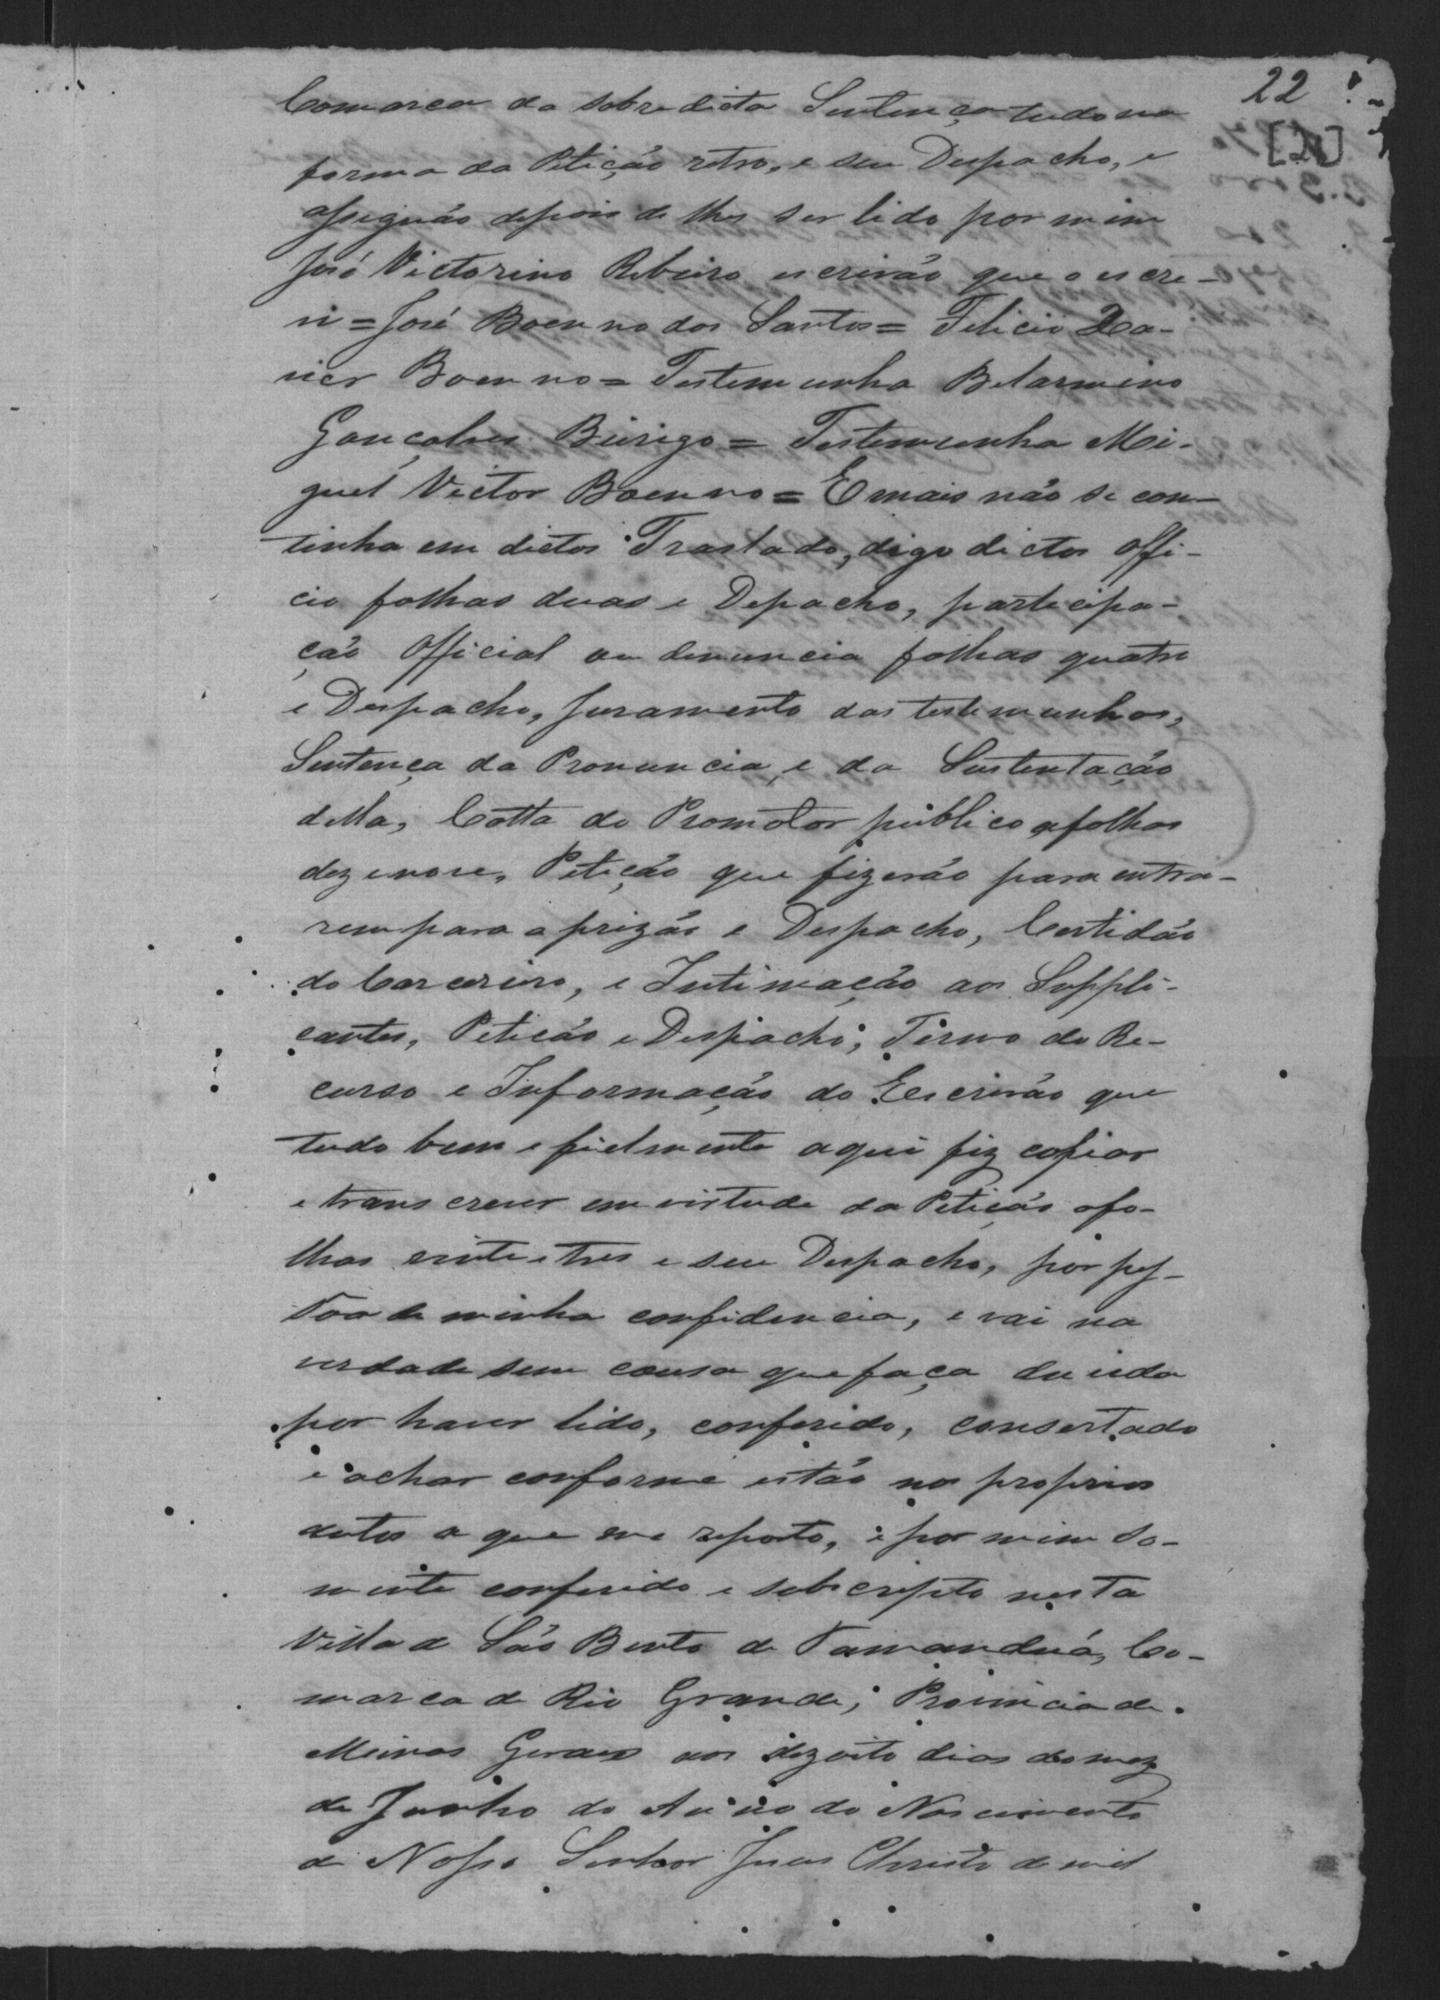 22
[21]
Comarca da sobredicta Sentença tudo na
forma da Petição retro, e seu Despacho, e
assignão depois de lhes ser lido por mim
José Victorino Ribeiro escrivão que o escre-
vi = José Boenno dos Santos = Felicio Xa-
vier Boenno = Testemunha Belarmino
Gonçalves Bùrigo = Testemunha Mi-
guel Victor Boenno = E mais não se con-
tinha em dictos Traslado, digo dictos offi-
cio folhas duas e Depacho, participa-
ção official ou denuncia folhas quatro
e Despacho, Juramento das testemunhas,
Sentença da Pronuncia, e da Sustentação
della, Cotta do Promotor público afolhas
dezenove, Petição que fizerão para entra-
rem para a prizão e Despacho, Certidão
do Carcereiro, e Intimação aos Suppli-
cantes, Petição e Despacho, Termo de Re-
curso e Informação do Escrivão que
tudo bem e fielmente aqui fiz copiar
e transcrever em virtude da Petição afo-
lhas vinte e tres e seu Despacho, por pes-
soa de minha confidencia, e vai na
verdade sem cousa que faça duvida
por haver lido, conferido, consertado
e achar conforme estão nos proprios
autos a que me reporto, e por mim so-
mente conferido e subscripto nesta
Villa de São Bento de Tamanduá, Co-
marca de Rio Grande, Provincia de
Minas Geraes aos dezoito dias do mez
de Junho do Anno do Nascimento
de Nosso Senhor Jesus Christo de mil